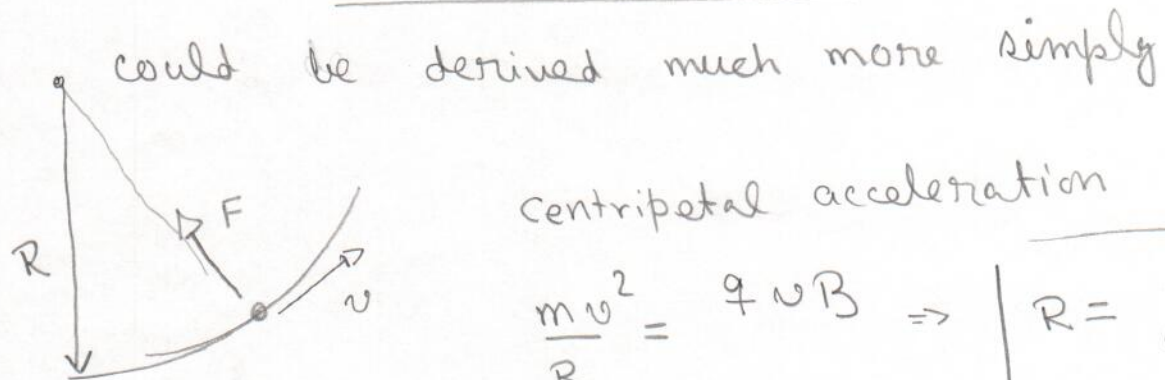 could be derived much more simply
F
centripetal acceleration
R
v
mv²/R = qvB => | R =